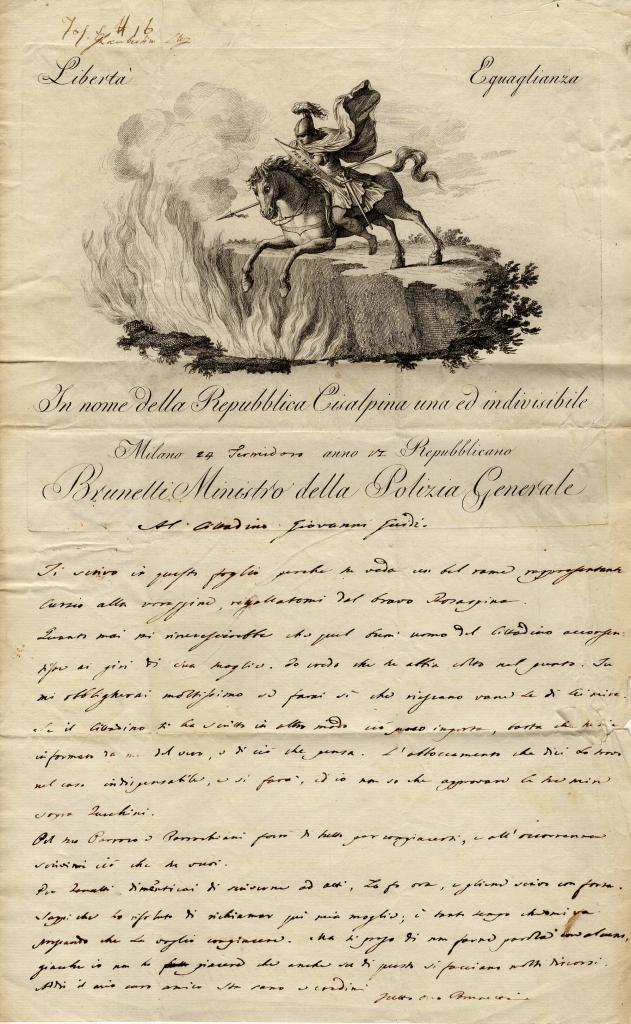 Libertà Eguaglianza
In nome della Repubblica Cisalpina una ed indivisibile
Milano 24 Termidoro anno VI Repubblicano
Brunetti Ministro della Polizia Generale
Al Cittadino Giovanni
Ti scrivo in questo foglio perche tu veda un bel rame rappresentante
Curzio alla voragine, regallatomi dal bravo Rosaspina.
Quanto mai mi rincrescierebbe che quel buon uomo del Cittadino
ai giri di sua moglie. Io credo che tu abbia colto nel punto. Tu
mi obbligherai moltissimo se farai sì che riescano vane le di lei mire.
Se il Cittadino ti ha scritto in altro modo ciò poco importa, basta che tu sia
informato da me del vero, e di ciò che pensa. L'abboccamento che dici lo trovo
nel caso indispensabile, e si farà, ed io non so che approvare le tue mire
sopra Zucchini.
Pel tuo Parroco e Parrochiani farò di tutto per compiacerti, e all'occorrenza
scrivimi ciò che tu vuoi.
Per dimenticai di scriverne ad Lo fo ora, e gliene scrivo con forza.
Sappi che ho risoluto di richiamar quì mia moglie; è tanto tempo che
che la voglio compiacere. Ma ti prego di non farne parola con alcuno,
giacche io non ho piacere che anche su di questo si facciano molti discorsi.
Addio il mio caro amico sta sano e credimi
Tutto tuo Brunetti